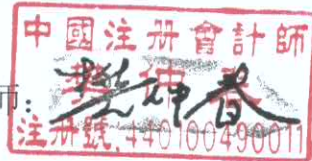 中國注册會計師
师：
注册號.440100490011